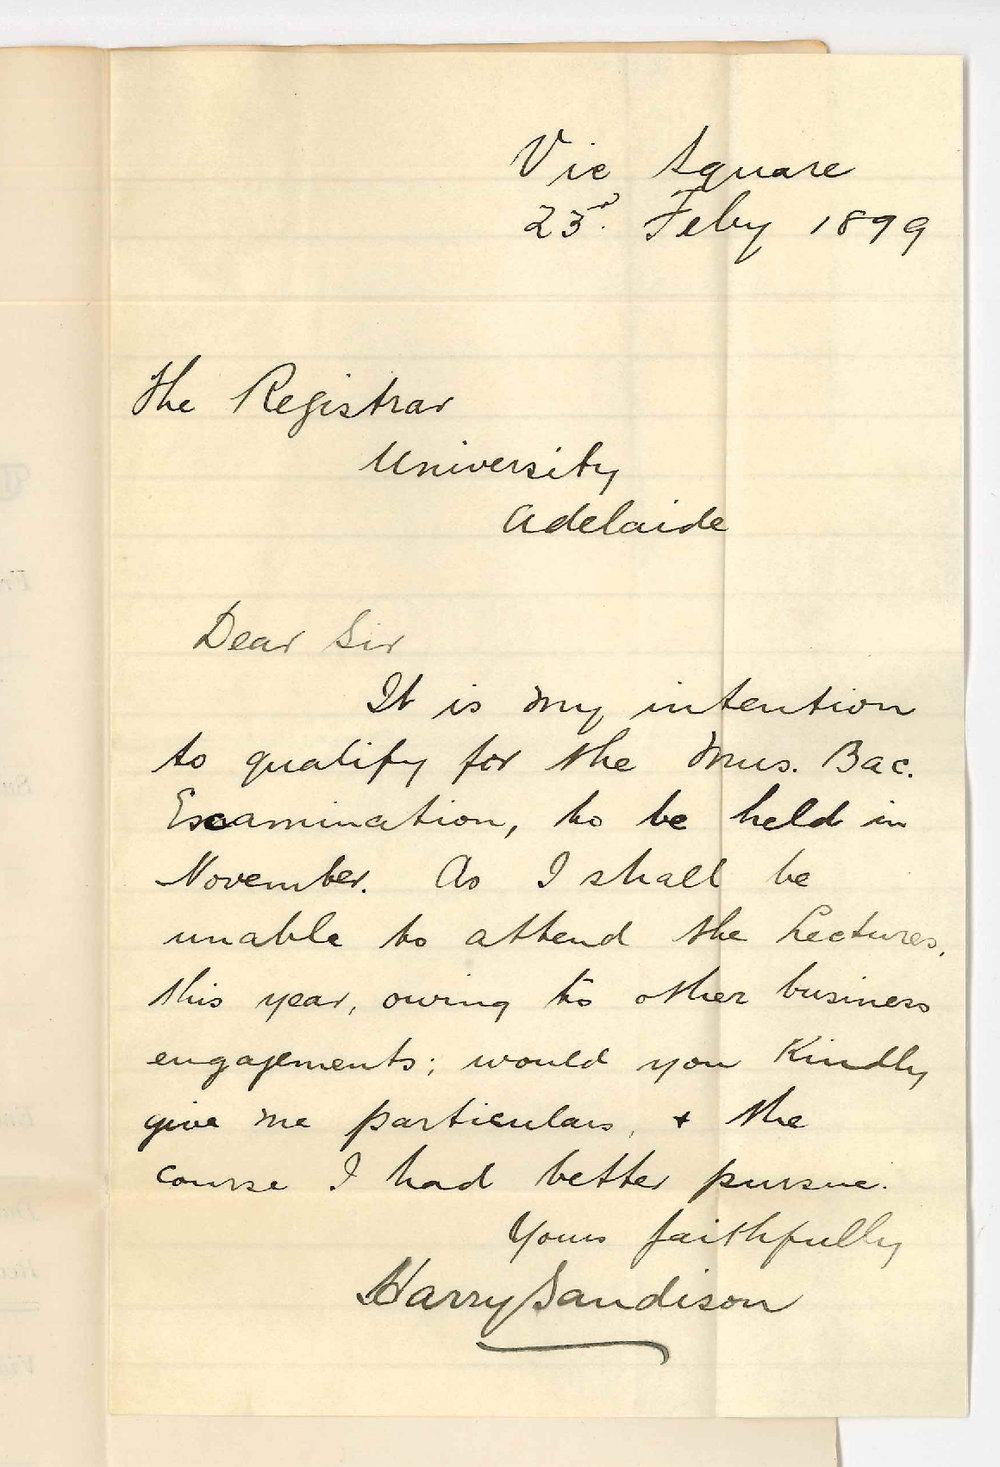 Vic Square
23rd. Feby 1899
The Registrar
University
Adelaide
Dear Sir
It is my intention
to qualify for the Mus. Bac.
Examination, to be held in
November. As I shall be
unable to attend the Lectures,
this year, owing to other business
engagements; would you Kindly
give me particulars, & the
course I had better pursue.
Yours faithfully
Harry Sandison